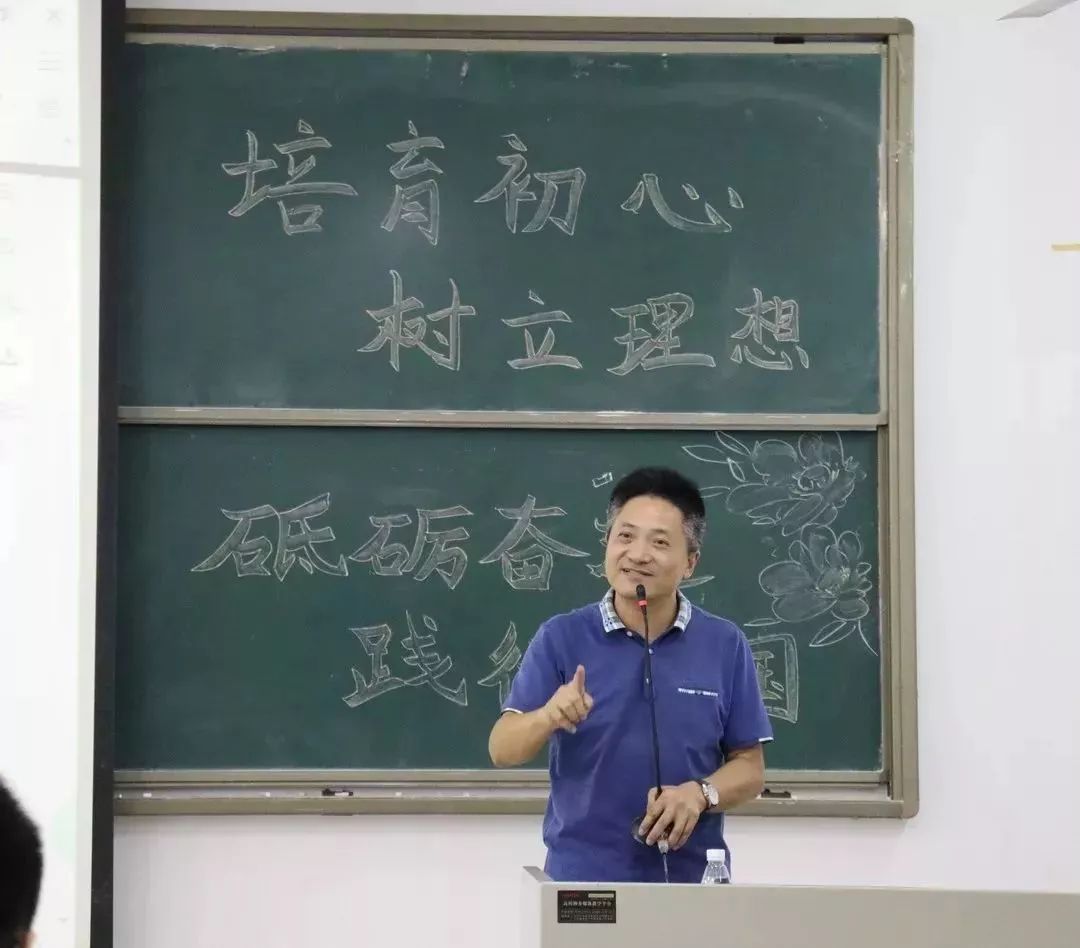 培育初心
树立理想
砥砺奋
践 国